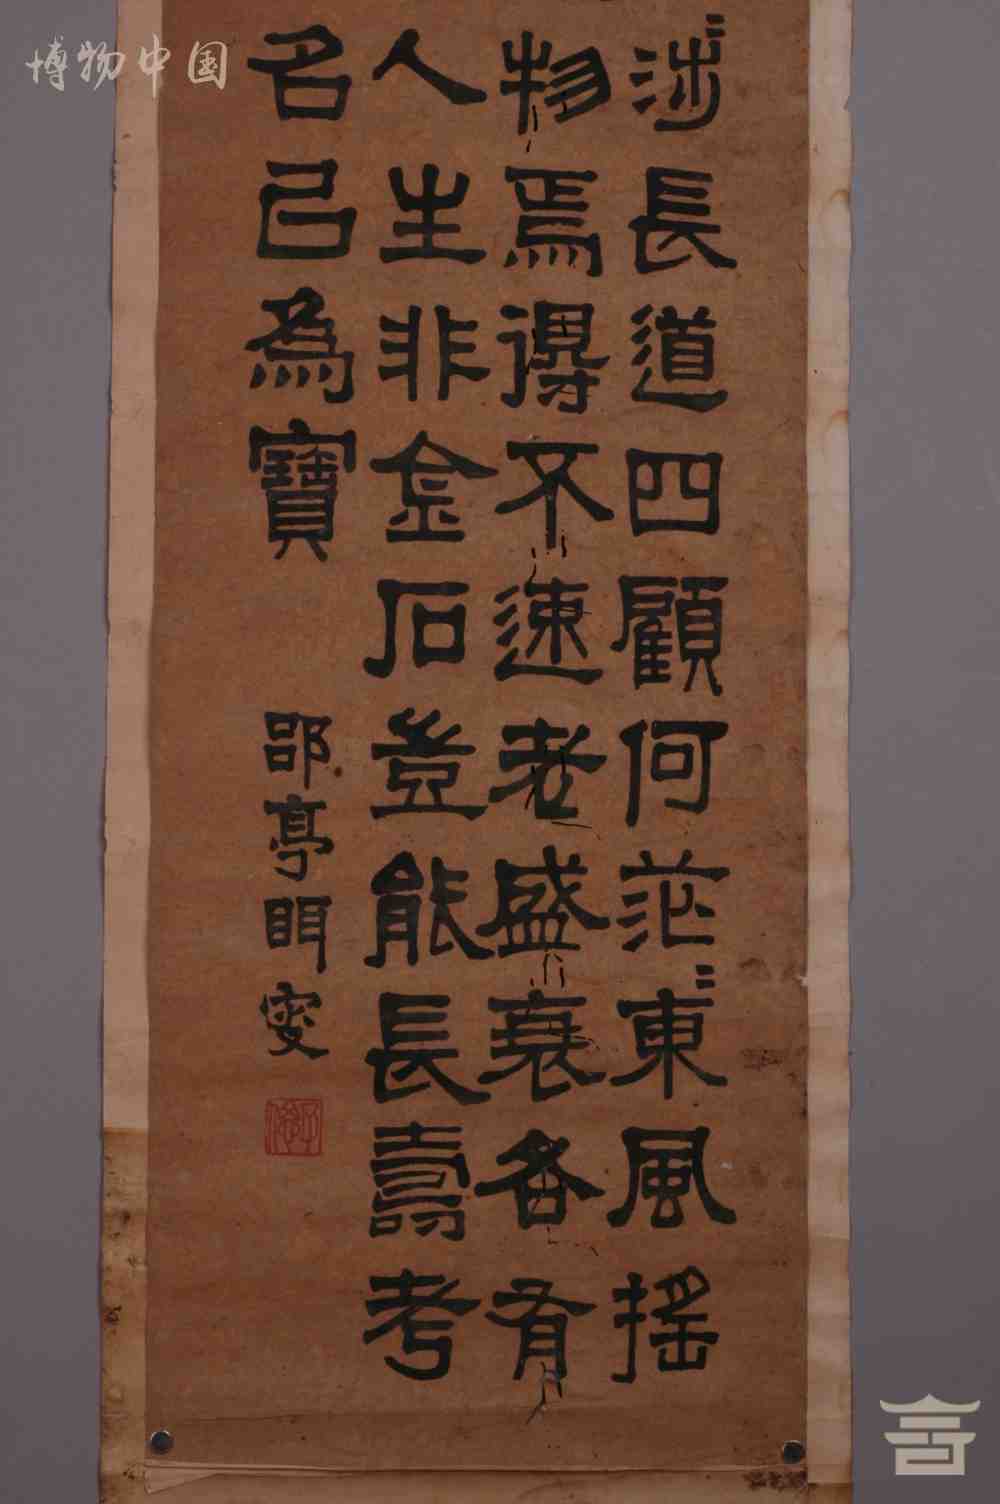 〻涉長道四顧何茫〻東風搖
物焉得不速老盛衰各有
人生非金石豈能長壽考
名已為寶
郘亭眲叟
子偲
博物中国